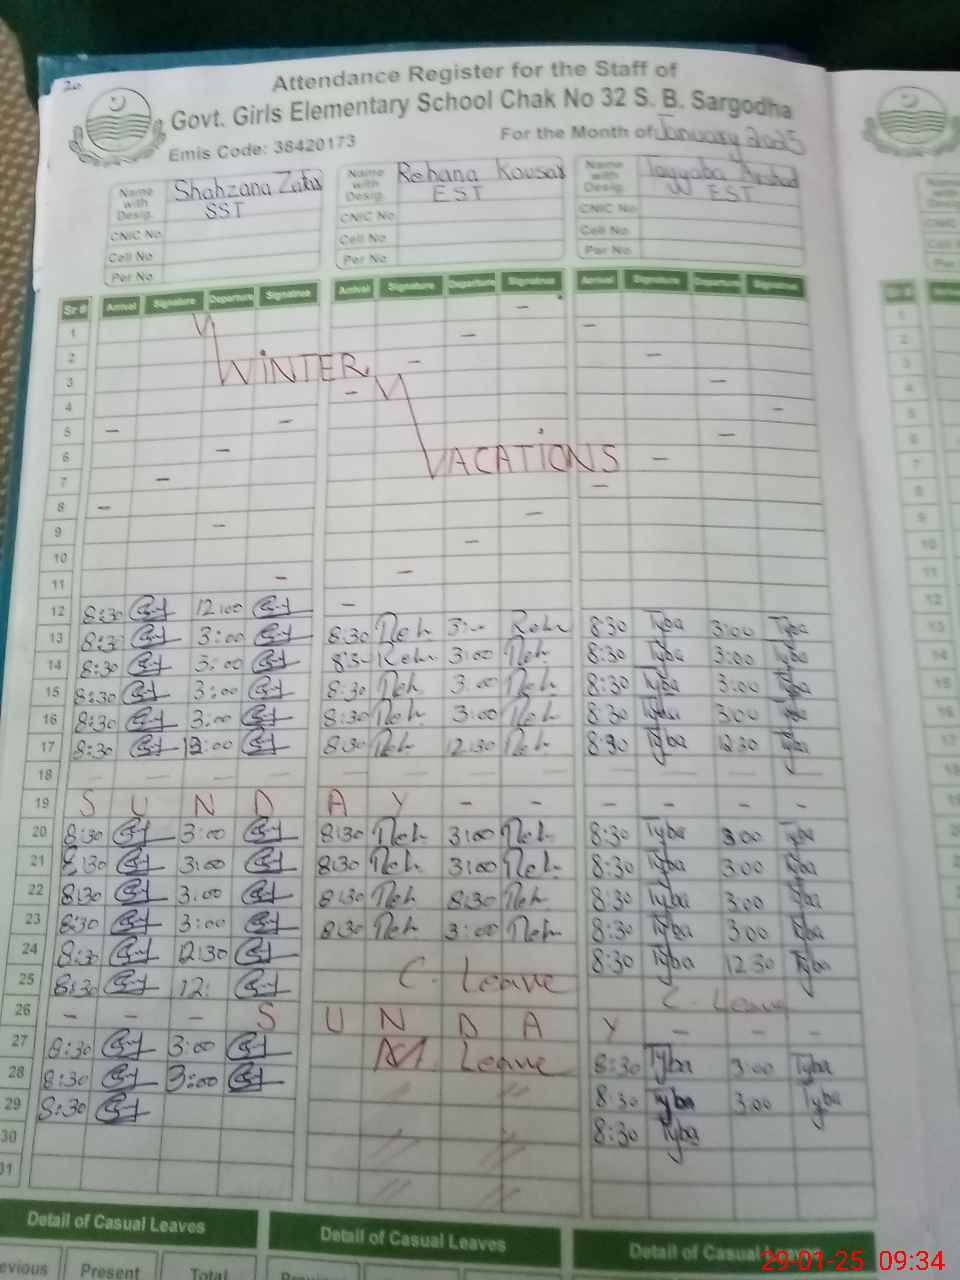 20
Attendance Register for the Staff of
Govt. Girls Elementary School Chak No 32 S. B. Sargodha
Emis Code: 38420173 For the Month of January 2025
Name with Desig. Shahzana Zafar SST Name with Desig. Rehana Kousar EST Name with Desig. Tayyaba Arshad EST
CNIC No. CNIC No. CNIC No.
Cell No Cell No Cell No
Per No Per No Per No
Sr # Arrival Signature Departure Signatrue Arrival Signature Departure Signatrue Arrival Signature Departure Signatrue
1
2
3 WINTER
4
5
6
7 VACATIONS
8
9
10
11
12 8:30 12:00 -
13 8:30 3:00 8:30 Reh 3:- Reh 8:30 Tyba 3:00 Tyba
14 8:30 3:00 8:30 Reh 3:00 Reh 8:30 Tyba 3:00 Tyba
15 8:30 3:00 8:30 Reh 3:00 Reh 8:30 Tyba 3:00 Tyba
16 8:30 3:00 8:30 Reh 3:00 Reh 8:30 Tyba 3:00 Tyba
17 8:30 8:30 Reh 12:30 Reh 8:30 Tyba 12 30 Tyba
18 - - - - - - - - - - - -
19 S U N D A Y - - - - - -
20 8:30 3:00 8:30 Reh 3:00 Reh 8:30 Tyba 3:00 Tyba
21 8:30 3:00 8:30 Reh 3:00 Reh 8:30 Tyba 3:00 Tyba
22 8:30 3:00 8:30 Reh 8:30 Reh 8:30 Tyba 3:00 Tyba
23 8:30 3:00 8:30 Reh 3:00 Reh 8:30 Tyba 3:00 Tyba
24 8:30 12:30 C. Leave 8:30 Tyba 12 30 Tyba
25 8:30 12: C. Leave
26 - - - S U N D A Y - - -
27 8:30 3:00 Leave 8:30 Tyba 3:00 Tyba
28 8:30 3:00 // // 8:30 Tyba 3:00 Tyba
29 8:30 8:30 Tyba
30 // //
31 // //
Detail of Casual Leaves Detail of Casual Leaves Detail of Casual Leaves
Present Total
29-01-25 09:34